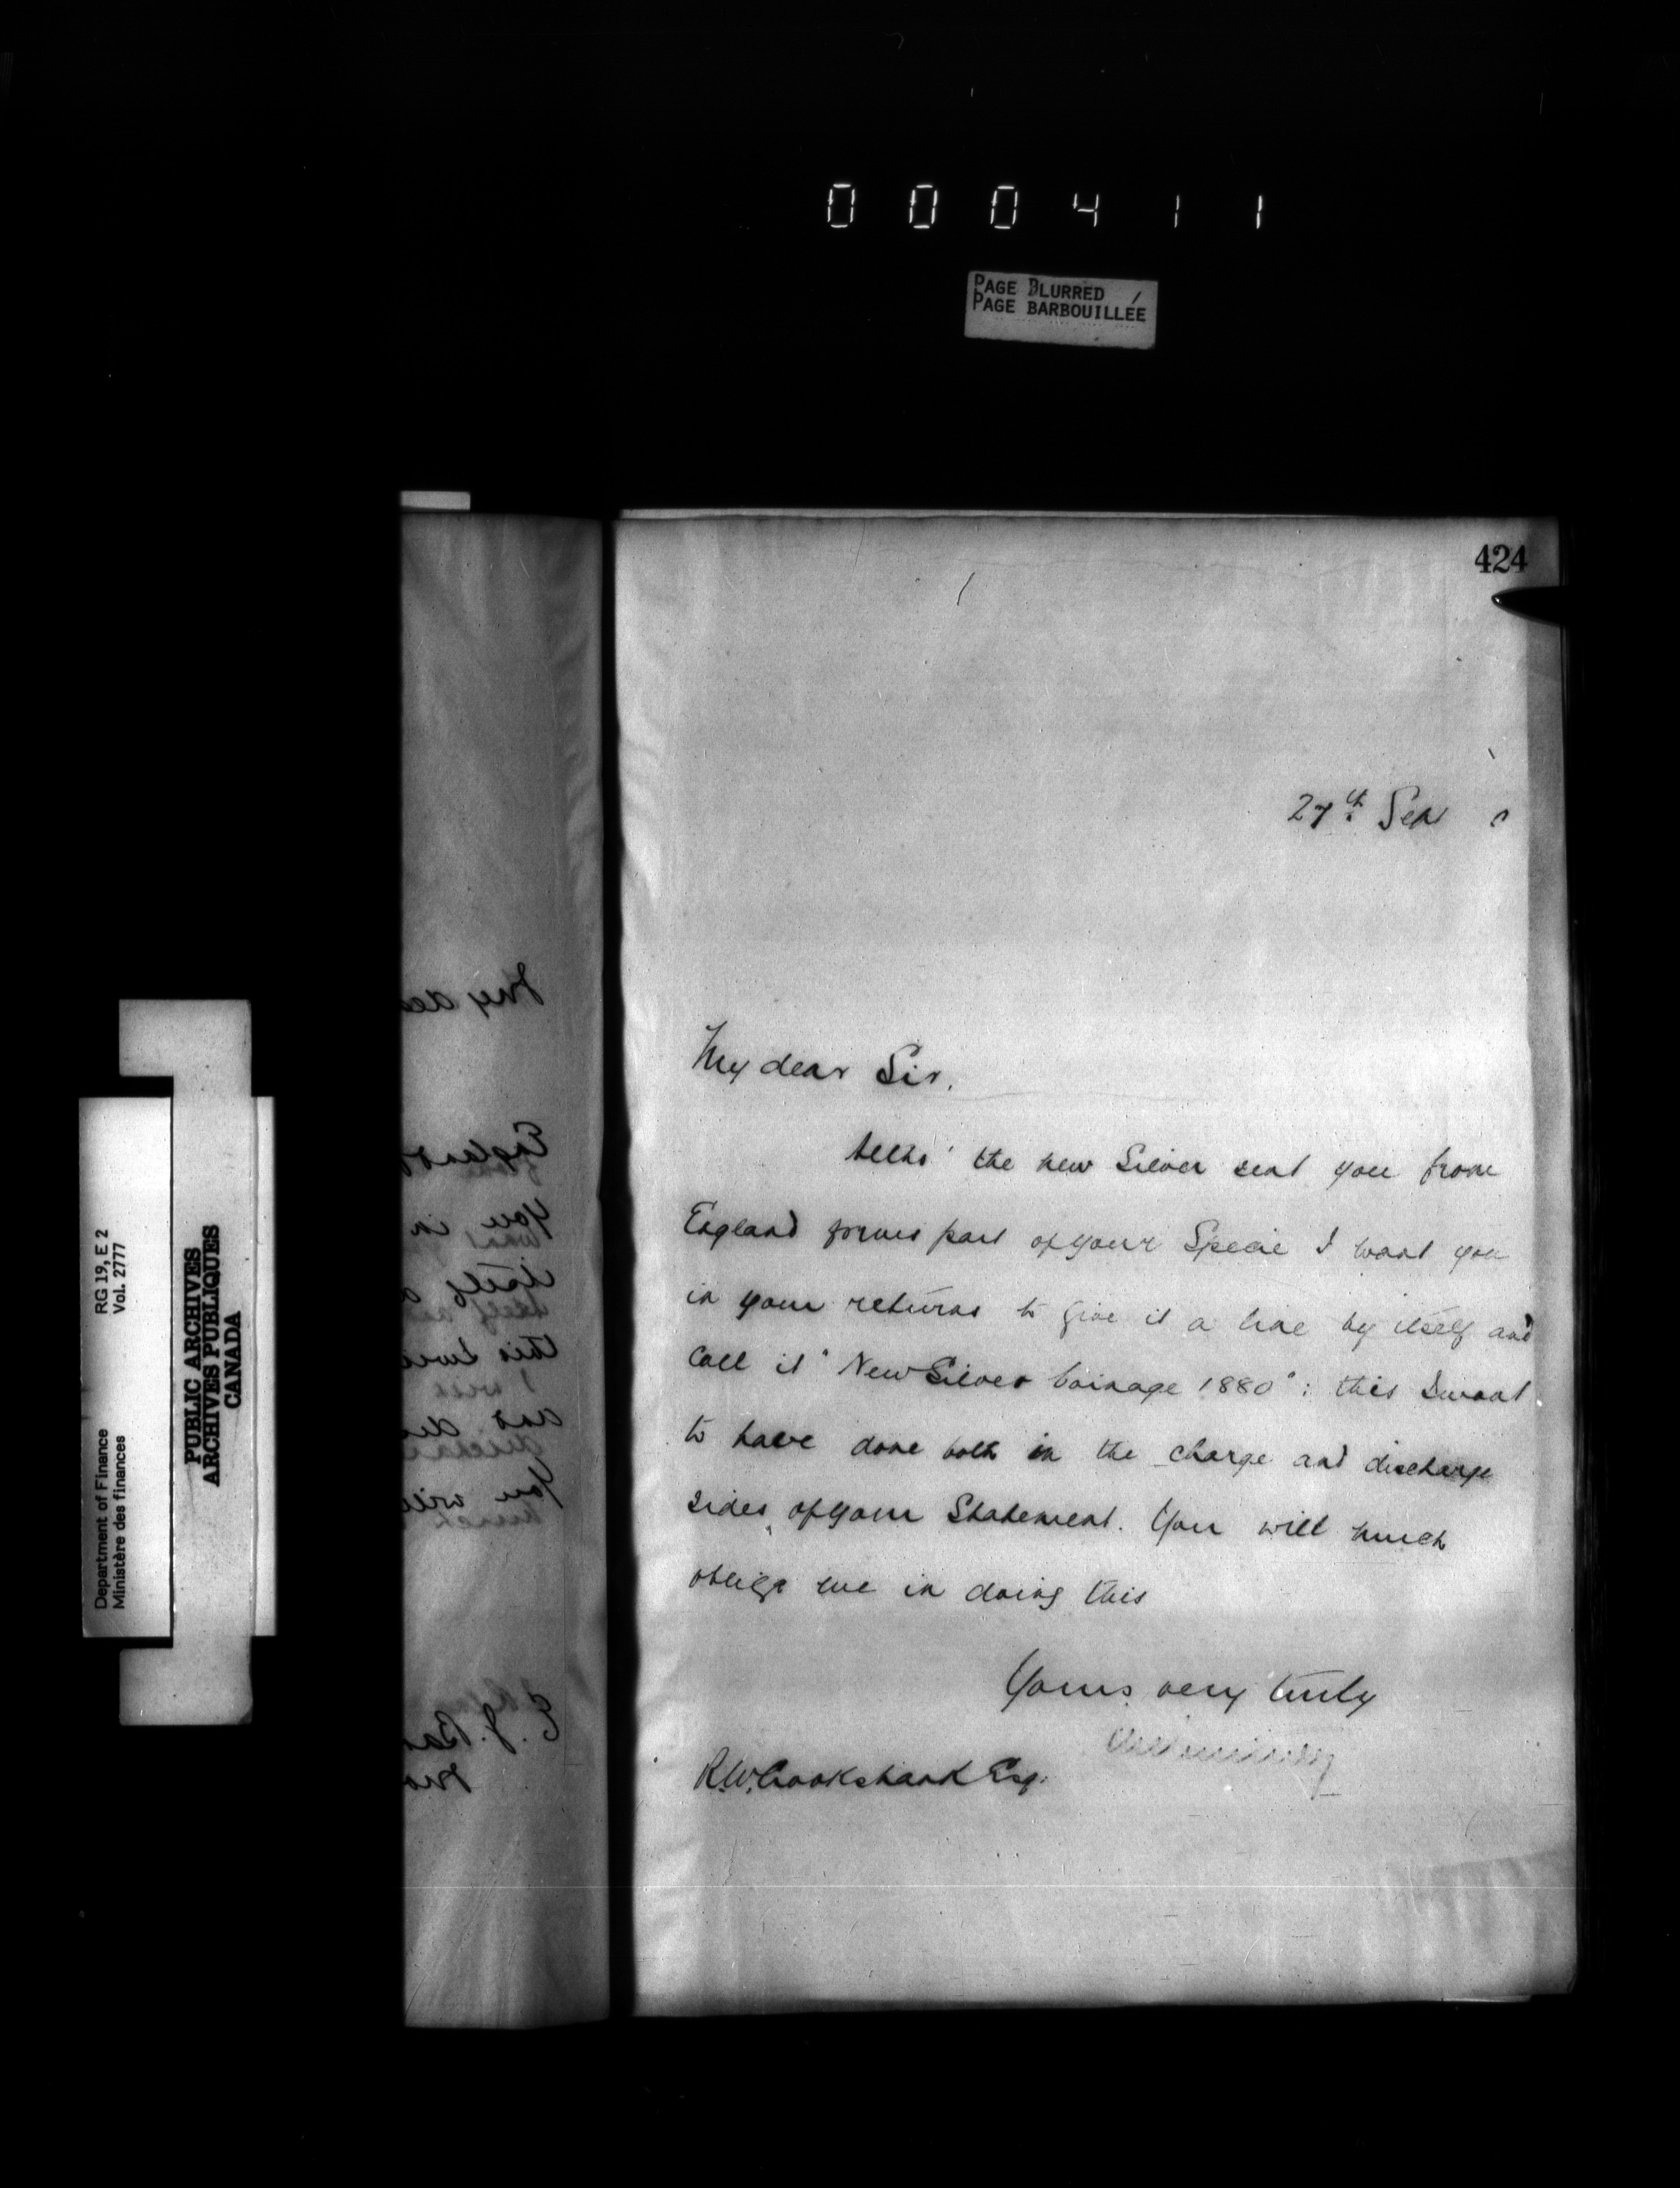 000411
PAGE BLURRED
PAGE BARBOUILLÉE
424
27th Sep
My dear Sir,
Altho' the new Silver sent you from
England forms part of your Specie I want you
in your returns to give it a line by itself and
Call it "New Silver Coinage 1880": this I want
to have done both in the charge and discharge
sides of your Statement. You will much
oblige me in doing this
Yours very truly
R.W. Crookshank Esq:
Department of Finance
Ministère des finances
RG 19, E 2
Vol. 2777
PUBLIC ARCHIVES
ARCHIVES PUBLIQUES
CANADA
My dea
England
you in
itself a
this I wa
and dis
You will
E. J. Ba